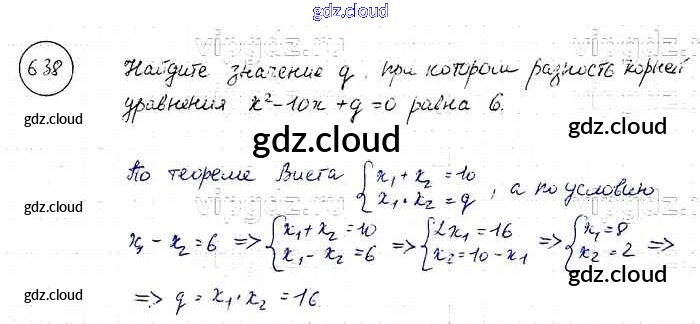 gdz.cloud
638 Найдите значение q, при котором разность корней
уравнения x² - 10x + q = 0 равна 6.
gdz.cloud
gdz.cloud
gdz.cloud
gdz.cloud
По теореме Виета { x₁ + x₂ = 10
x₁ · x₂ = q , а по условию
gdz.cloud
gdz.cloud
x₁ - x₂ = 6 => { x₁ + x₂ = 10
x₁ - x₂ = 6 => { 2x₁ = 16
x₂ = 10 - x₁ => { x₁ = 8
x₂ = 2 =>
gdz.cloud
gdz.cloud
=> q = x₁ · x₂ = 16.
gdz.cloud